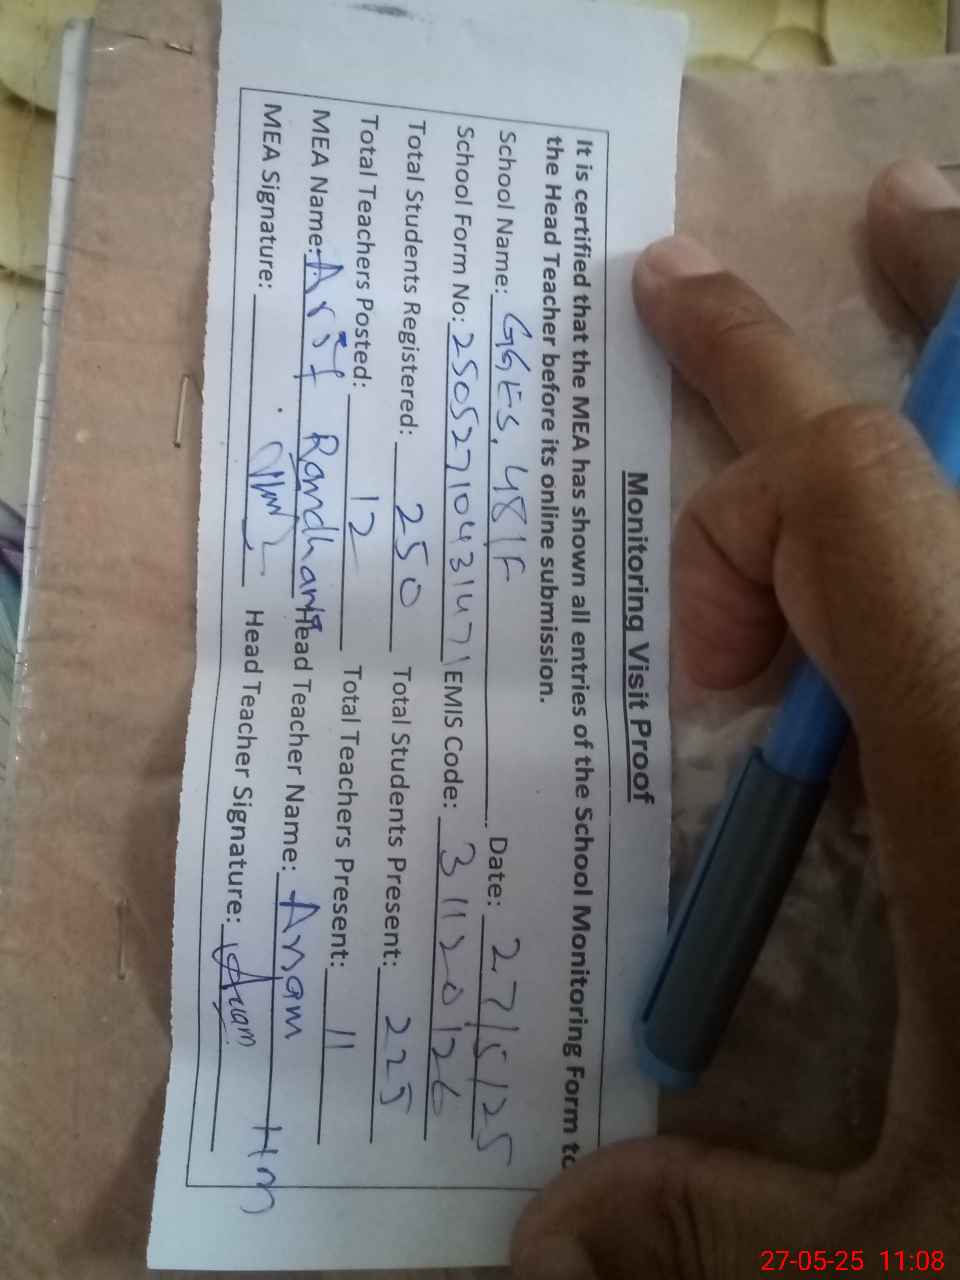 Monitoring Visit Proof
It is certified that the MEA has shown all entries of the School Monitoring Form to
the Head Teacher before its online submission.
School Name: GGES, 48/F Date: 27/5/25
School Form No: 25052710431471 EMIS Code: 31120126
Total Students Registered: 250 Total Students Present: 225
Total Teachers Posted: 12 Total Teachers Present: 11
MEA Name: Arif Randhawa Head Teacher Name: Anam HM
MEA Signature: Head Teacher Signature: Anam
27-05-25 11:08